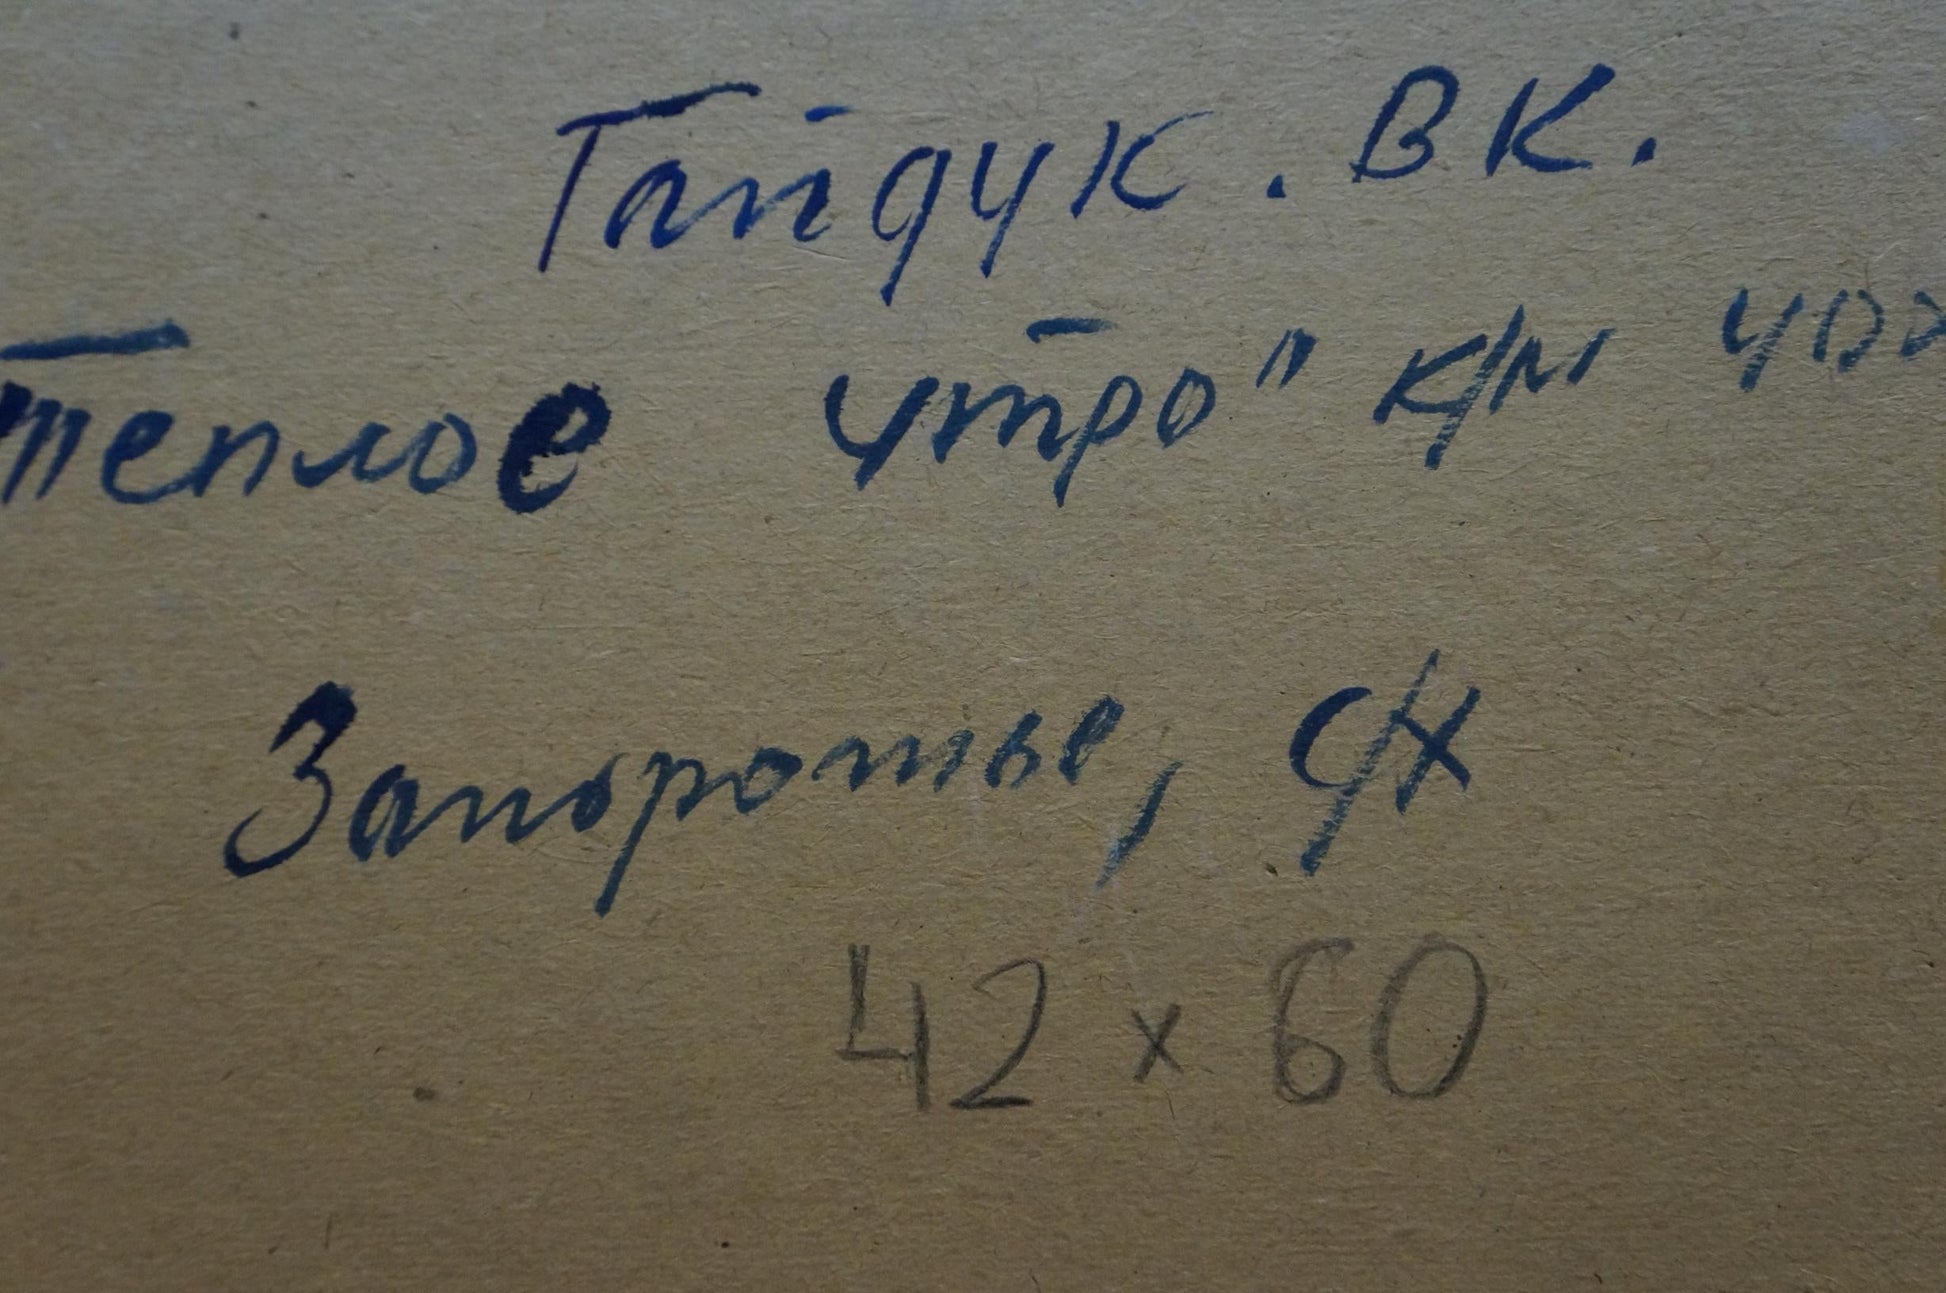 Гайдук. В К.
Теплое утро" к/м 40х
Запорожье, с/х
42 х 60